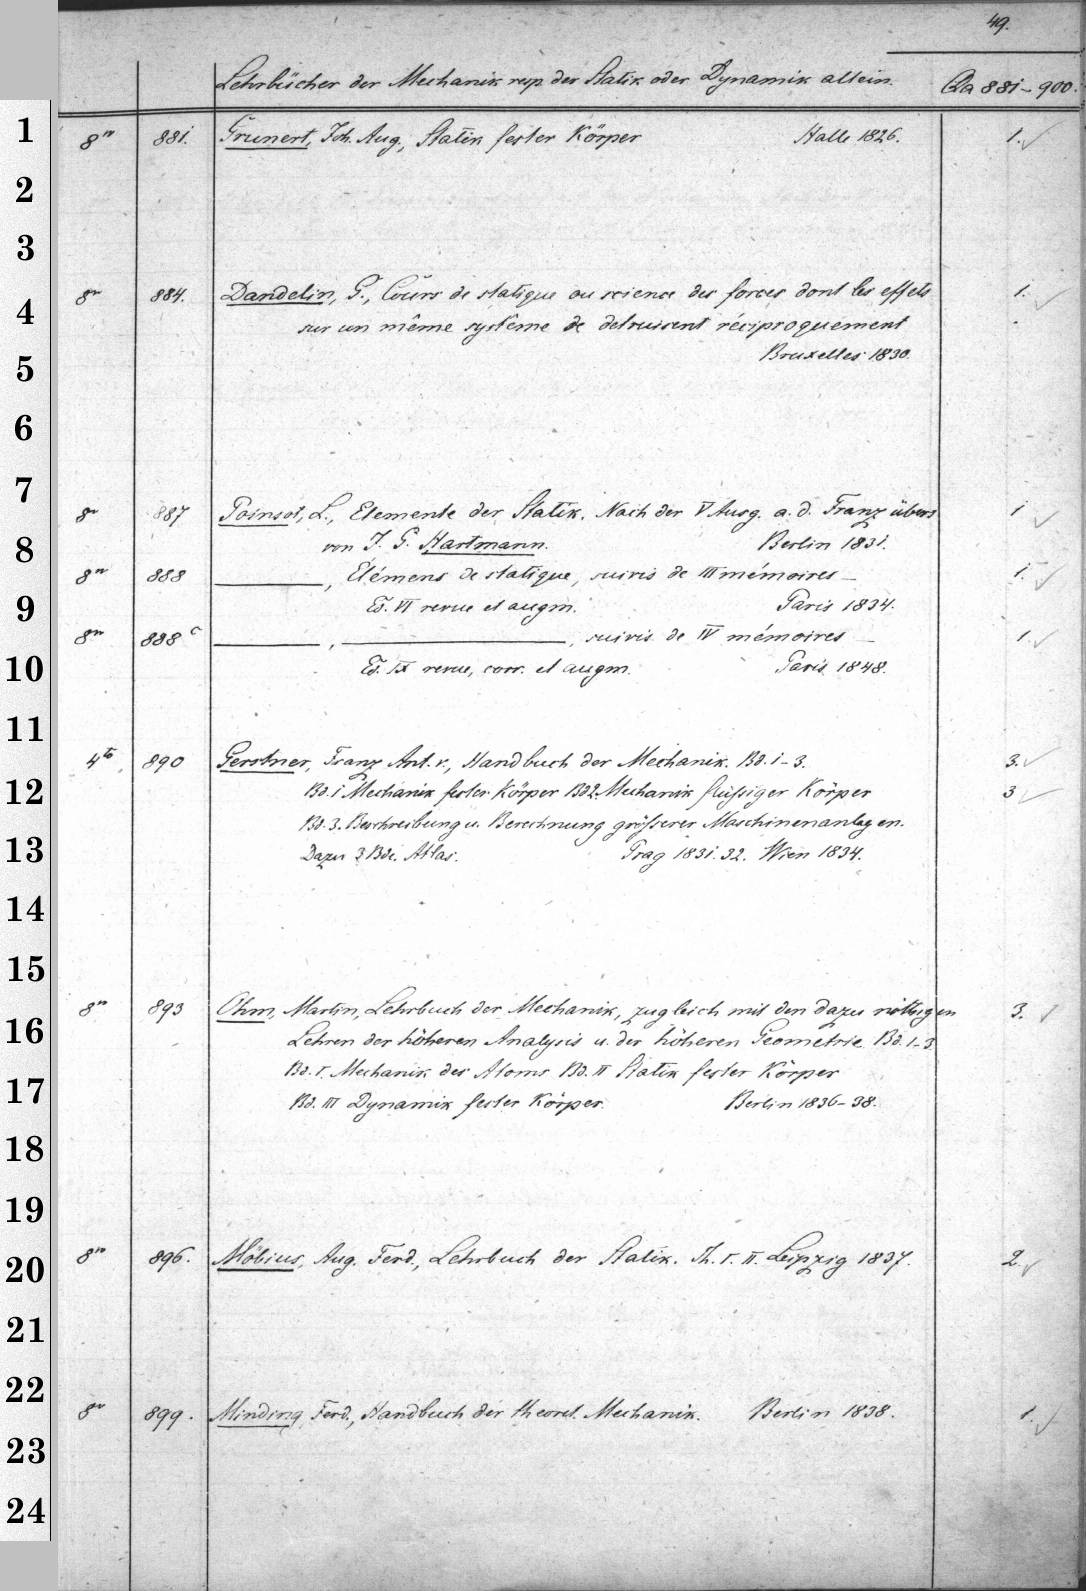 49.
Lehrbücher der Mechanik resp. der Statik oder Dynamik allein. Qa 881-900.
1 8vo 881. Grunert, Joh. Aug., Statik fester Körper Halle 1826. 1.
2
3
8vo 884. Dandelin, G., Cours de statique ou science des forces dont les effets 1.
4 sur un même système de detruisent réciproquement
5 Bruxelles 1830.
6
7
8vo 887 Poinsot, L., Elemente der Statik. Nach der V Ausg. a. d. Franz übers 1
8 von J. G. Hartmann. Berlin 1831.
8vo 888 ———, Élémens de statique, suivis de III mémoires — 1.
9 Ed. VI revue et augm. Paris 1834.
8vo 888c ———, ———, suivis de IV mémoires — 1.
10 Ed. IX revue, corr. et augm. Paris 1848.
11
4to 890 Gerstner, Franz Ant. v., Handbuch der Mechanik. Bd. 1-3. 3.
12 Bd. 1 Mechanik fester Körper Bd 2. Mechanik flüssiger Körper 3
Bd. 3. Beschreibung u. Berechnung grösserer Maschinenanlagen.
13 Dazu 3 Bde. Atlas. Prag 1831. 32. Wien 1834.
14
15
8vo 893 Ohm, Martin, Lehrbuch der Mechanik, zugleich mit den dazu nöthigen 3.
16 Lehren der höheren Analysis u. der höheren Geometrie Bd. 1-3
Bd. I. Mechanik des Atoms Bd. II Statik fester Körper
17 Bd. III Dynamik fester Körper. Berlin 1836-38.
18
19
8vo 896. Möbius, Aug. Ferd., Lehrbuch der Statik. Th. I. II. Leipzig 1837. 2.
20
21
22
8vo 899. Minding, Ferd., Handbuch der theoret. Mechanik. Berlin 1838. 1.
23
24